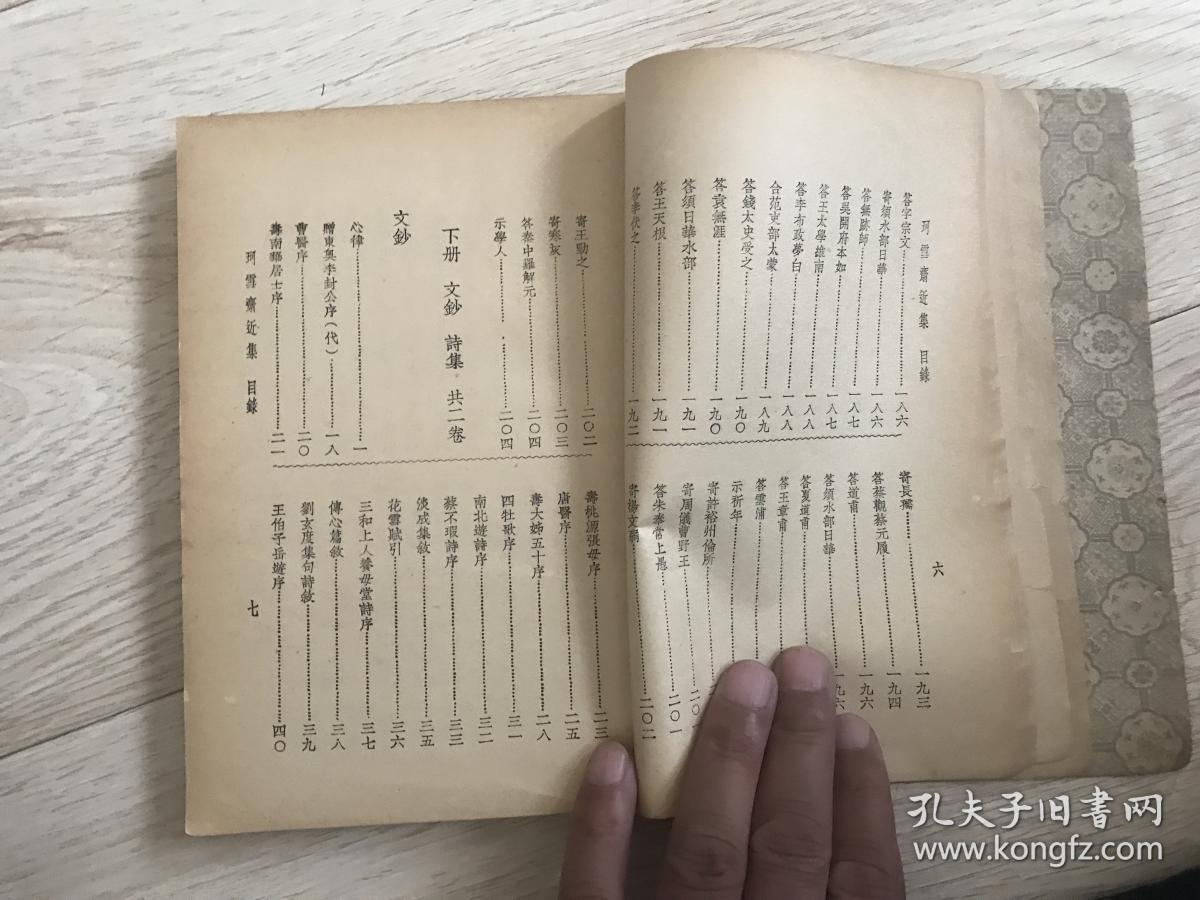 珂雪齋近集 目錄
六
答字宗文…………一八六
寄須水部日華…………一八六
答無跡師…………一八七
答吳開府本如…………一八七
答王太學維南…………一八八
答李布政夢白…………一八八
合范吏部太蒙…………一八九
答錢太史受之…………一九〇
答袁無涯…………一九〇
答須日華水部…………一九一
答王天根…………一九一
答李伏之…………一九二
寄長孺…………一九三
答蔡觀蔡元履…………一九四
答道甫…………一九六
答須水部日華…………一九六
答夏道甫…………
答王章甫…………
答雲浦…………
示祈年…………
寄許裕州倫所…………
寄周儀曹野王…………二〇
答朱泰常上愚…………二〇一
寄楊文弱…………二〇二
寄王勁之…………二〇二
寄寒灰…………二〇三
答秦中羅解元…………二〇四
示學人…………二〇四
下册 文鈔 詩集 共二卷
文鈔
心律…………一
贈東奧李封公序(代)…………一八
曹醫序…………二〇
壽南趨居士序…………二一
壽桃源張母序…………二三
唐醫序…………二五
壽大姊五十序…………二八
四牡歌序…………三一
南北遊詩序…………三二
蔡不瑕詩序…………三三
淡成集敘…………三五
花雪賦引…………三六
三和上人養母堂詩序…………三七
傳心篇敘…………三八
劉玄度集句詩敘…………三九
王伯子岳遊序…………四〇
珂雪齋近集 目錄
七
孔夫子旧书网
www.kongfz.com